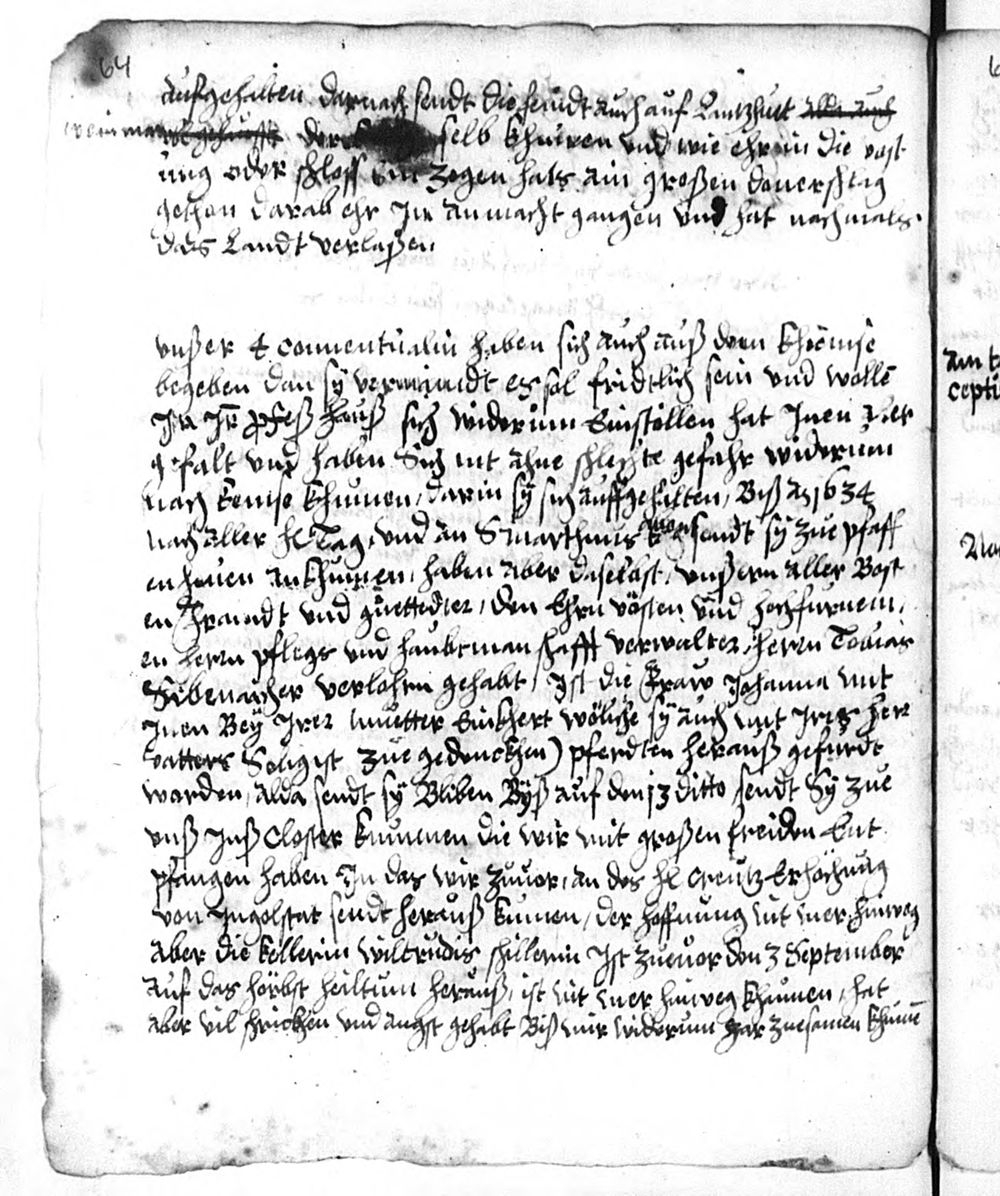 64
aufgehalten darnach sendt die feindt auch auf Lantzhut alda auch
weinmar selb khumen und wie ehr in die vest
ung oder schloss ein zogen hats ain großen donerschtag
gethon darab ehr In anmacht gangen und hat nachmals
das Landt verlaßen
unßer 4 conventualin haben sich auch auß dem khiemse
begeben dan sy vermaindt es sol fridtlich sein und wolle
In Ir profeß hauß sich widerum Einstöllen hat Inen aber
gefalt und haben Sich nit ahne schlechte gefahr widerum
nach kemse khumen, darin sy sich auffgehalten, Biß Ao 1634
nach aller hl Tag, und an S marthinus sendt sy zue pfaff
enhouen ankhumen, haben aber daselbst, unßern aller Best
en freundt und guettedter, den Ehrn vösten und hochfurnem,
en herrn pflegs und haubtmanschafft verwalter, herrn Tobias
verlohrn gehabt, Ist die fraw Johanna mit
Inen Bey Irer muetter Einkhert wöliche sy auch mit Ires herr
vatters Selig ist zue gedenckhen) pferdten herauß gefurdt
worden, alda sendt sy Bliben Byß auf den 13 ditto, sendt Sy zue
unß Inß Closter kummen die wir mit großen freiden Ent
pfangen haben In das wir zuuor, an des hl Creutz Erhöchung
von Ingolstat sendt herauß kumen, der hoffnung nit mer hinweg
aber die kellerin wiltrudis schillerin Ist zueuor den 3 September
auf das hörbst heiltum herauß, ist nit mer hinweg khumen, hat
aber vil schrickhen und angst gehabt Biß wir widerum gar zuesamen khume
am t
cepti